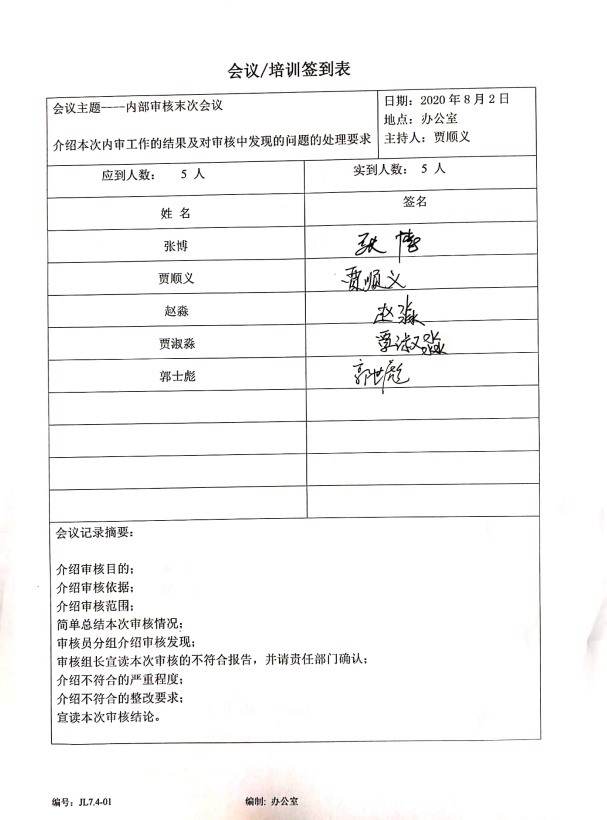 会议/培训签到表
会议主题----内部审核末次会议
介绍本次内审工作的结果及对审核中发现的问题的处理要求
日期：2020 年 8 月 2 日
地点：办公室
主持人：贾顺义
应到人数： 5 人
实到人数： 5 人
姓 名
签名
张博
张博
贾顺义
贾顺义
赵淼
赵淼
贾淑淼
贾淑淼
郭士彪
郭世彪
会议记录摘要：
介绍审核目的；
介绍审核依据；
介绍审核范围；
简单总结本次审核情况；
审核员分组介绍审核发现；
审核组长宣读本次审核的不符合报告，并请责任部门确认；
介绍不符合的严重程度；
介绍不符合的整改要求；
宣读本次审核结论。
编号：JL7.4-01
编制: 办公室